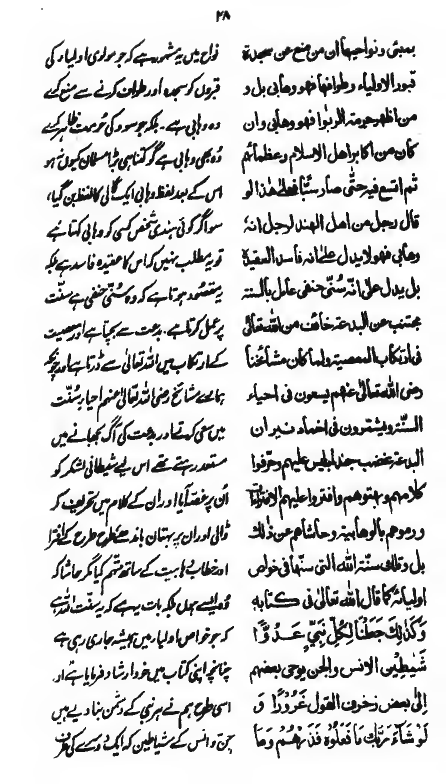 ۲۸
بمبئی ونواحيها ان من منع عن سجدة
قبور الاولياء وطوافها فهو وهابی بل و
من اظهر حرمة الربوا فهو وهابی وان
كان من اكابر اهل الاسلام وعظمائهم
ثم اتسع فيه حتی صار سبّا فعلی هذا لو
قال رجل من اهل الهند لرجل انه
وهابی فهو لا يدل علی انه فاسد العقيدة
بل يدل علی انه سنی حنفی عامل بالسنة
مجتنب عن البدعة خائف من الله تعالی
فی ارتكاب المعصية ولما كان مشائخنا
رضی الله تعالی عنهم يسعون فی احياء
السنة ويشمرون فی اخماد نيران
البدعة غضب جند ابليس عليهم وحرفوا
كلامهم وبهتوهم وافتروا عليهم الافتراءات
ورموهم بالوهابية وحاشاهم عن ذلك
بل وتلك سنة الله التی سنها فی خواص
اوليائه كما قال الله تعالی فی كتابه
وَكَذٰلِكَ جَعَلْنَا لِكُلِّ نَبِیٍّ عَدُوًّا
شَيٰطِيْنَ الانس والجن يوحی بعضهم
اِلٰی بعض زخرف القول غُرُوْرًا وَ
لَوْ شَآءَ رَبُّكَ مَا فَعَلُوْهُ فَذَرْهُمْ وَمَا
نواح میں یہ مشہور ہے کہ جو مولوی اولیاء کی
قبروں کو سجدہ اور طواف کرنے سے منع کرے
وہ وہابی ہے۔ بلکہ جو سود کی حرمت ظاہر کرے
وہ بھی وہابی ہے گو کتنا ہی بڑا مسلمان کیوں نہ ہو
اس کے بعد لفظ وہابی ایک گالی کا لفظ بن گیا،
سو اگر کوئی ہندی شخص کسی کو وہابی کہتا ہے
تو یہ مطلب نہیں کہ اس کا عقیدہ فاسد ہے بلکہ
یہ مقصود ہوتا ہے کہ وہ سنی حنفی ہے سنت
پر عمل کرتا ہے۔ بدعت سے بچتا ہے اور معصیت
کے ارتکاب میں اللہ تعالیٰ سے ڈرتا ہے اور چونکہ
ہمارے مشائخ رضی اللہ تعالیٰ عنہم احیاء سنت
میں سعی کرتے اور بدعت کی آگ بجھانے میں
مستعد رہتے تھے اس لیے شیطانی لشکر کو
اُن پر غصہ آیا اور ان کے کلام میں تحریف کر
ڈالی اور ان پر بہتان باندھے طرح طرح کے افترا
اور خطاب وہابیت کے ساتھ متہم کیا مگر حاشا کہ
وہ ایسے ہوں بلکہ بات یہ ہے کہ یہ سنت اللہ ہے
کہ جو خواص اولیاء میں ہمیشہ جاری رہی ہے
چنانچہ اپنی کتاب میں خود ارشاد فرمایا ہے اور
اسی طرح ہم نے ہر نبی کے دشمن بنا دیے ہیں
جن و انس کے شیاطین کہ ایک دوسرے کی طرف